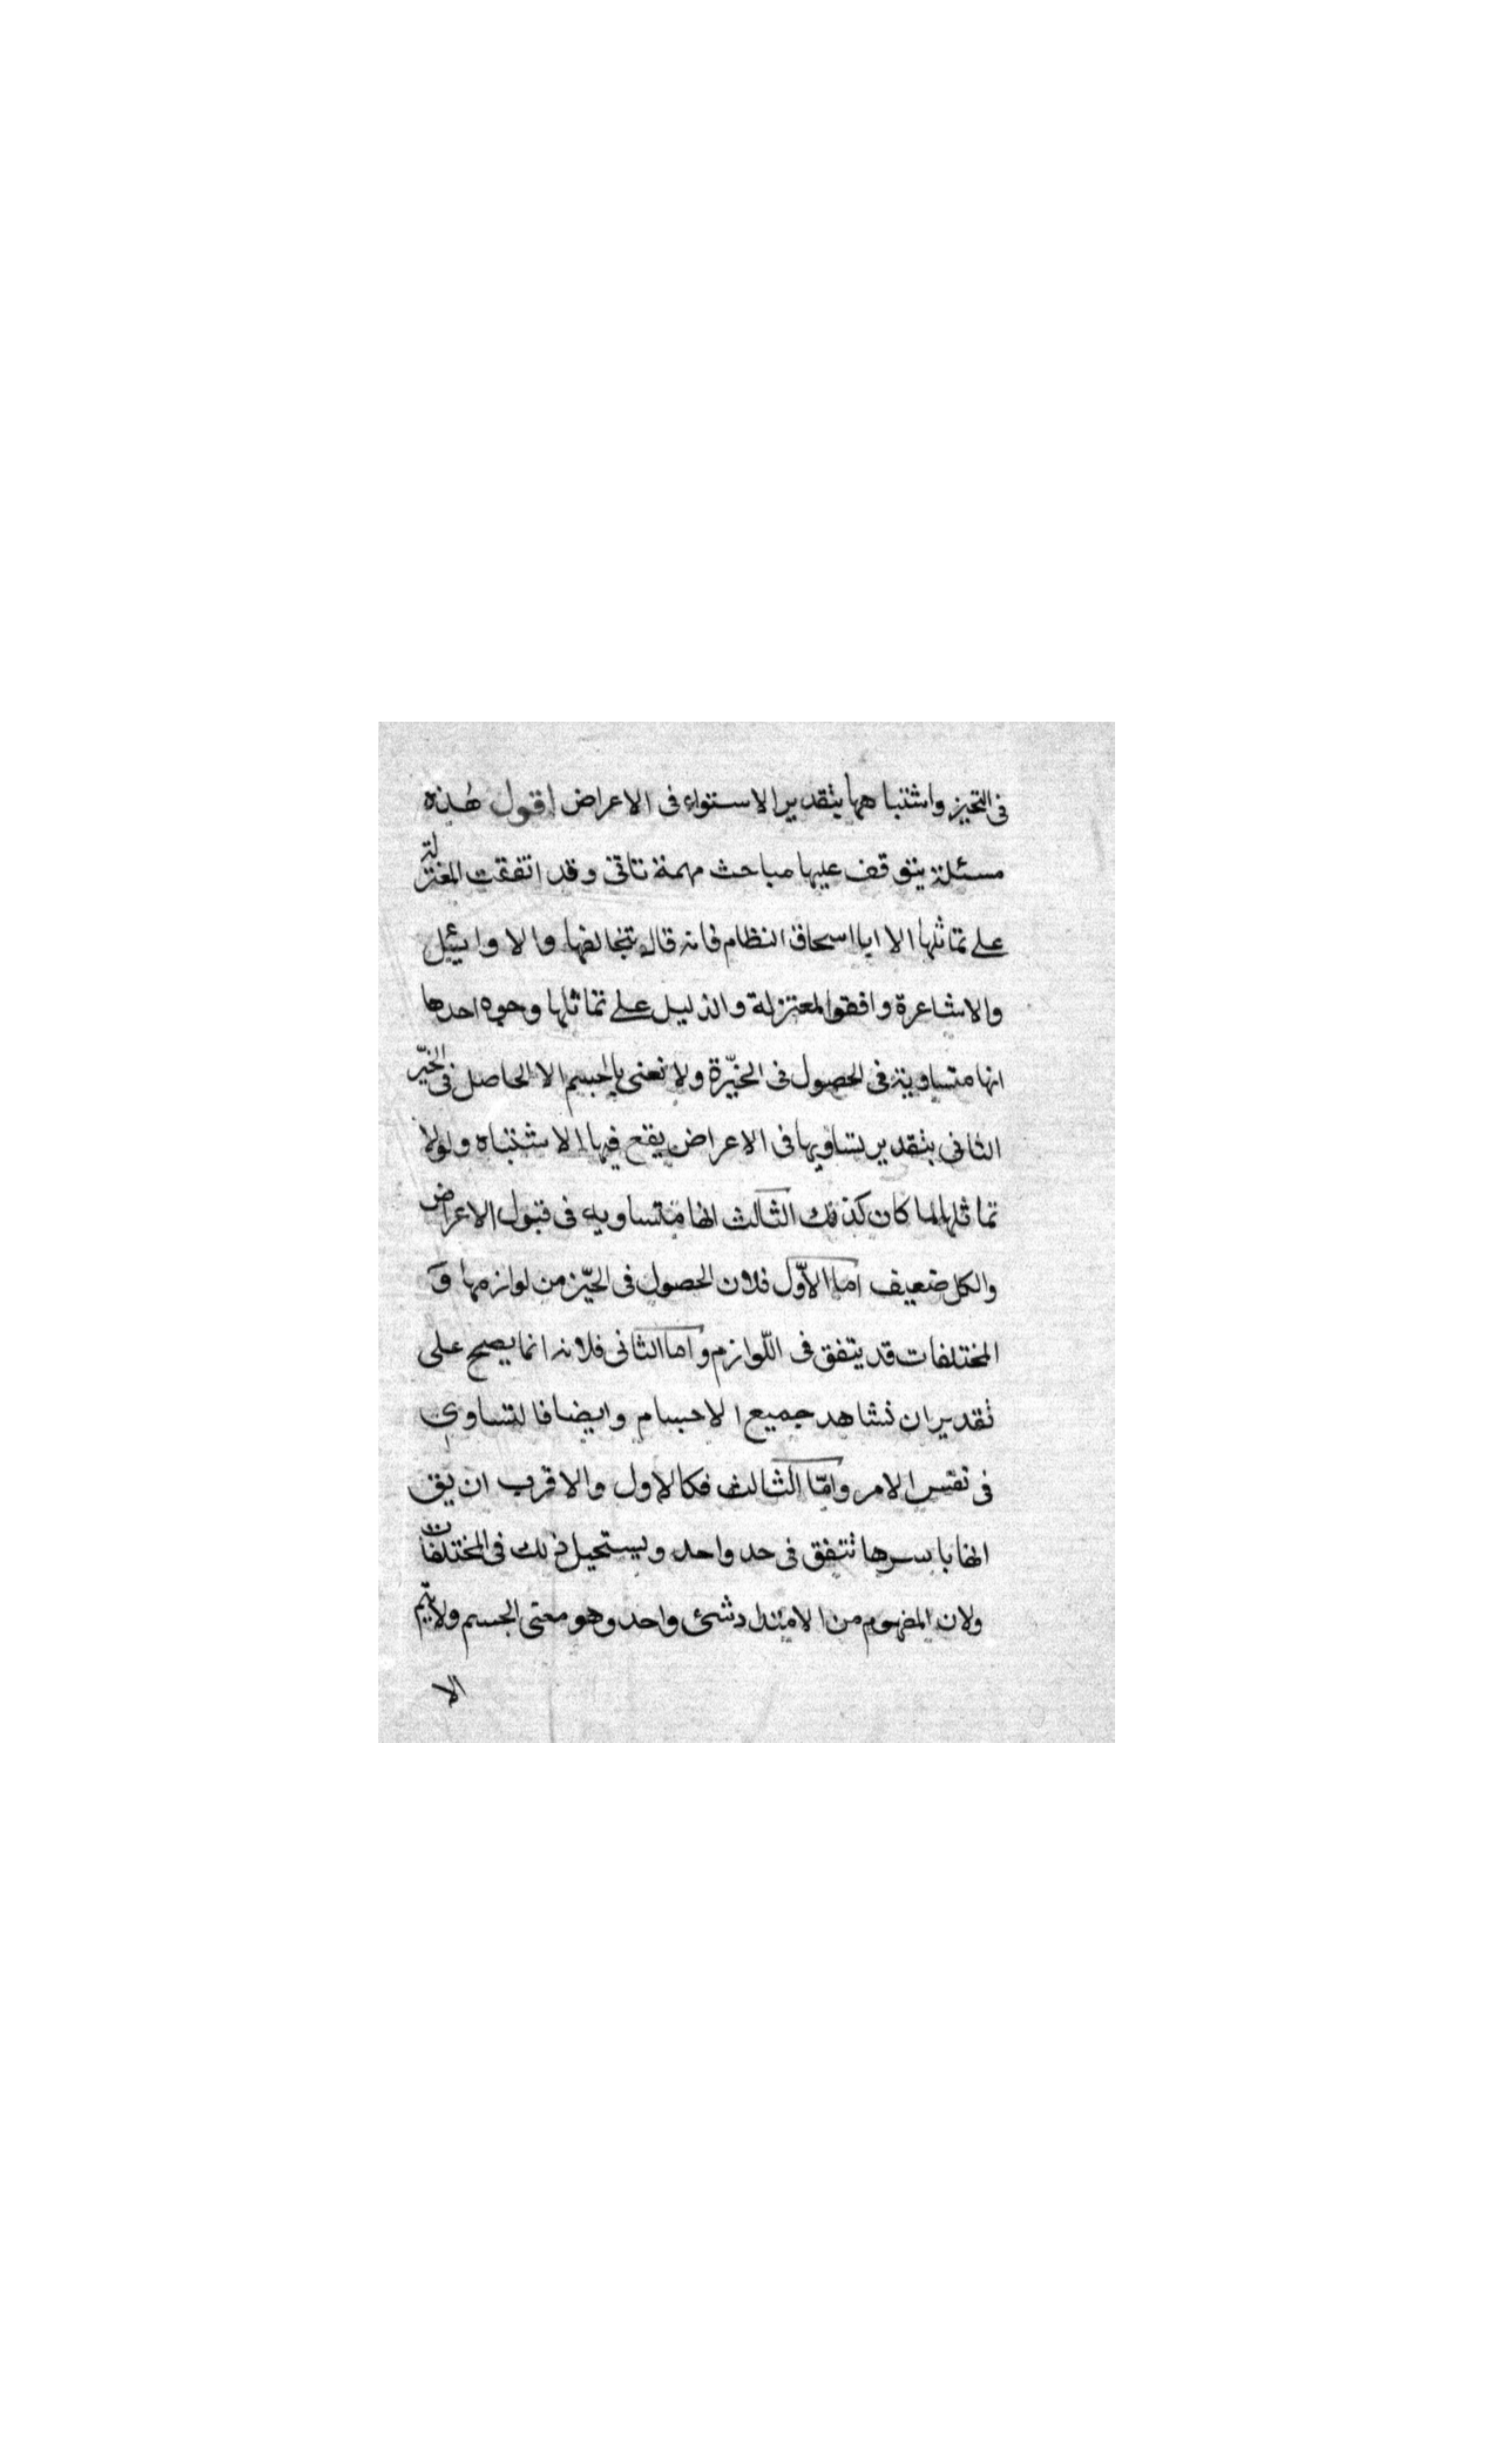 فى التحيز واشتباههما بتقدير الاستواء فى الاعراض اقول هذه
مسئلة يتوقف عليها مباحث مهمة تاتى وقد اتفقت المعتزلة
على تماثلها الا ابا اسحاق النظام فانه قال بتخالفها والاوايئل
والاشاعرة وافقوا لمعتزلة والدليل على تماثلها وجوه احدها
انها متساوية فى الحصول فى الحيّزة ولا نعنى بالجسم الا الحاصل فى الحيّز
الثانى بتقدير تساويها فى الاعراض يقع فيها الاشتباه ولولا
تماثلها لما كان كذلك الثالث انها متساويه فى قبول الاعراض
والكل ضعيف اما الاوّل فلان الحصول فى الحيّز من لوازمها و
المختلفات قد يتفق فى اللّوازم واما الثانى فلانه انما يصح على
تقدير ان نشاهد جميع الاجسام وايضا فالتساوى
فى نفس الامر وامّا الثالث فكالاول والاقرب ان يق
انها باسرها تتفق فى حد واحد ويستحيل ذلك فى المختلفات
ولان المفهوم من الامتداد شئ واحد وهو معنى الجسم ولا يتم
الا